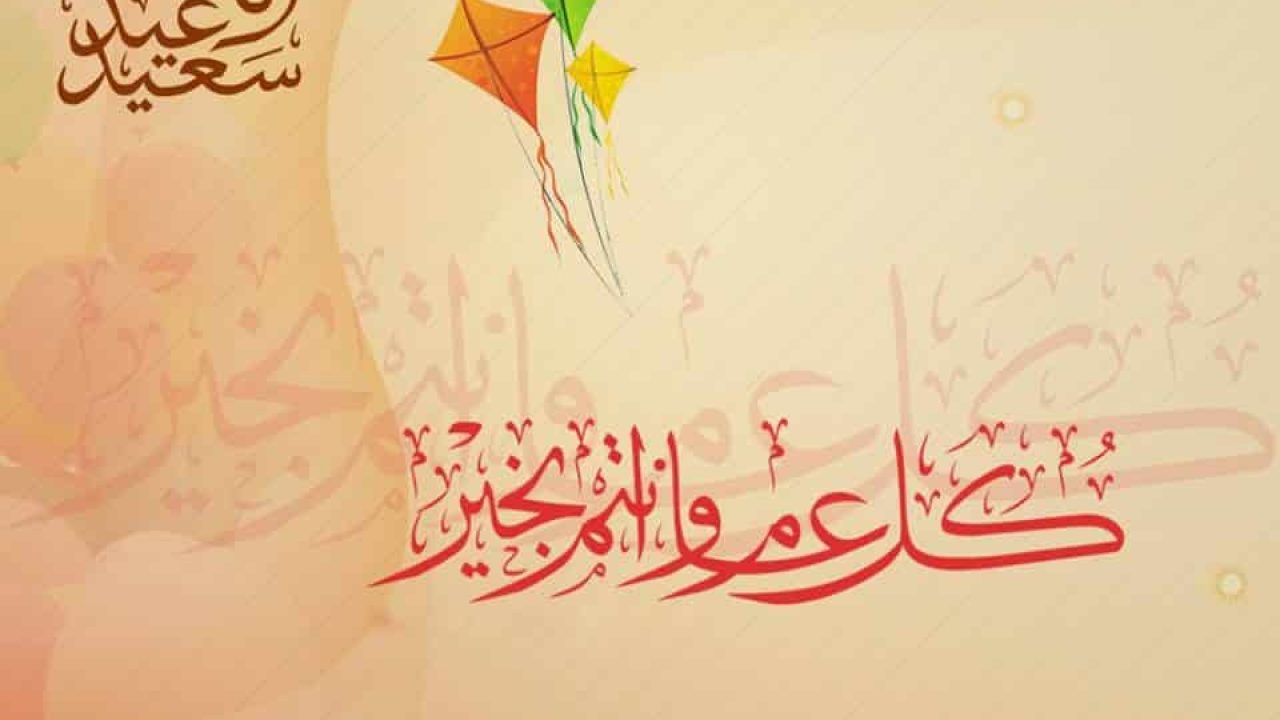 عيد
سعيد
كل عام وانتم بخير
كل عام وانتم بخير